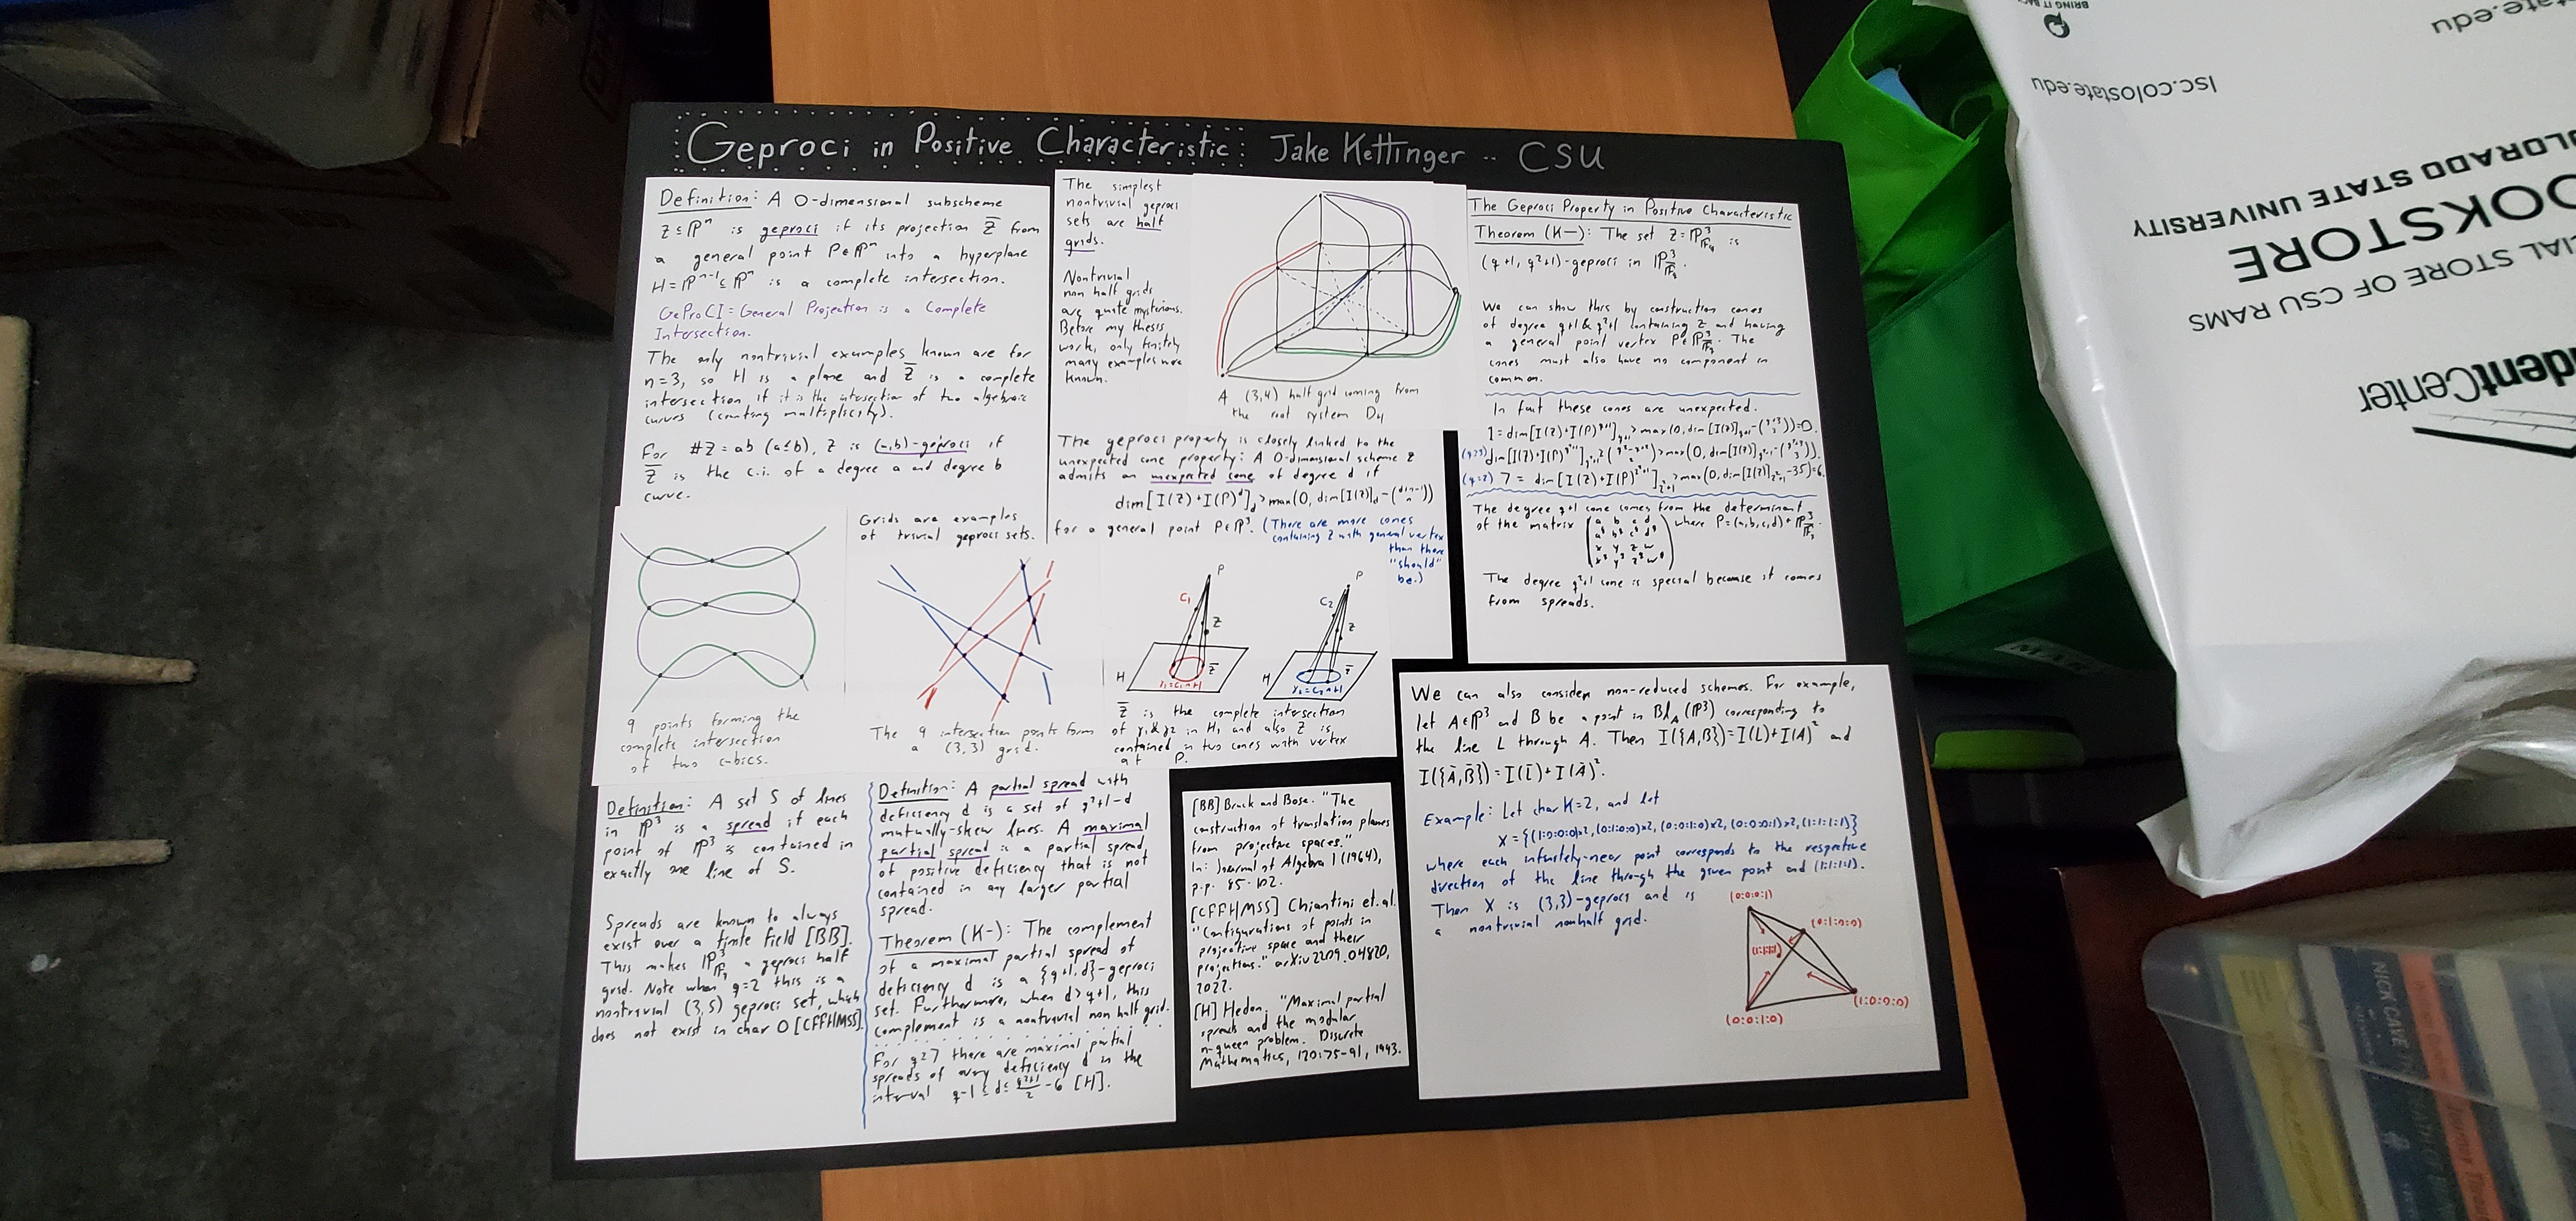 Geproci in Positive Characteristic: Jake Kettinger -- CSU
Definition: A 0-dimensional subscheme
Z ⊆ ℙⁿ is geproci if its projection Z̄ from
a general point P∈ℙⁿ into a hyperplane
H=ℙⁿ⁻¹⊆ℙⁿ is a complete intersection.
GeProCI=General Projection is a Complete
Intersection.
The only nontrivial examples known are for
n=3, so H is a plane and Z̄ is a complete
intersection if it is the intersection of two algebraic
curves (counting multiplicity).
For #Z=ab (a≤b), Z is (a,b)-geproci if
Z̄ is the c.i. of a degree a and degree b
curve.
9 points forming the
complete intersection
of two cubics.
Grids are examples
of trivial geproci sets.
The 9 intersection points form
a (3,3) grid.
The simplest
nontrivial geproci
sets are half
grids.
Nontrivial
non half grids
are quite mysterious.
Before my thesis
work, only finitely
many examples were
known.
A (3,4) half grid coming from
the root system D4
The geproci property is closely linked to the
unexpected cone property: A 0-dimensional scheme Z
admits an unexpected cone of degree d if
dim[I(Z)∩I(P)ᵈ]_d>max(0, dim[I(Z)]_d-(d+n-1 n))
for a general point P∈ℙ³. (There are more cones
containing Z with general vertex
than there
"should"
be.)
P
C₁
Z
H
Z̄
γ₁=C₁∩H
P
C₂
Z
H
Z̄
γ₂=C₂∩H
Z̄ is the complete intersection
of γ₁&γ₂ in H, and also Z is
contained in two cones with vertex
at P.
The Geproci Property in Positive Characteristic
Theorem (K—): The set Z=ℙ³_𝔽q is
(q+1, q²+1)-geproci in ℙ³_𝔽̄q.
We can show this by construction cones
of degree q+1 & q²+1 containing Z and having
a general point vertex P∈ℙ³_𝔽̄q. The
cones must also have no component in
common.
In fact these cones are unexpected.
The degree q+1 cone comes from the determinant
of the matrix (a b c d
a^q b^q c^q d^q
x y z w
x^q y^q z^q w^q) where P=(a,b,c,d)∈ℙ³_𝔽̄q.
The degree q²+1 cone is special because it comes
from spreads.
Definition: A set S of lines
in ℙ³ is a spread if each
point of ℙ³ is contained in
exactly one line of S.
Spreads are known to always
exist over a finite field [BB].
This makes ℙ³_𝔽q a geproci half
grid. Note when q=2 this is a
nontrivial (3,5) geproci set, which
does not exist in char 0 [CFFHMSS].
Definition: A partial spread with
deficiency d is a set of q²+1-d
mutually-skew lines. A maximal
partial spread is a partial spread
of positive deficiency that is not
contained in any larger partial
spread.
Theorem (K-): The complement
of a maximal partial spread of
deficiency d is a {q+1,d}-geproci
set. Furthermore, when d>q+1, this
complement is a nontrivial non half grid.
For q≥7 there are maximal partial
spreads of every deficiency d in the
interval q-1≤d≤(q²+1)/2-6 [H].
[BB] Bruck and Bose. "The
construction of translation planes
from projective spaces."
In: Journal of Algebra 1 (1964),
p.p. 85-102.
[CFFHMSS] Chiantini et.al.
"Configurations of points in
projective space and their
projections." arXiv 2209.04820,
2022.
[H] Heden, "Maximal partial
spreads and the modular
n-queen problem. Discrete
Mathematics, 120:75-91, 1993.
We can also consider non-reduced schemes. For example,
let A∈ℙ³ and B be a point in Bl_A(ℙ³) corresponding to
the line L through A. Then I({A,B})=I(L)+I(A)² and
I({Ā,B̄})=I(L̄)+I(Ā)².
Example: Let char K=2, and let
X={(1:0:0:0)×2,(0:1:0:0)×2,(0:0:1:0)×2,(0:0:0:1)×2,(1:1:1:1)}
where each infinitely-near point corresponds to the respective
direction of the line through the given point and (1:1:1:1).
Then X is (3,3)-geproci and is
a nontrivial nonhalf grid.
(0:0:0:1)
(0:1:0:0)
(1:1:1:1)
(1:0:0:0)
(0:0:1:0)
BRING IT BACK
lsc.colostate.edu
COLORADO STATE UNIVERSITY
OOKSTORE
CIAL STORE OF CSU RAMS
dentCenter
NICK CAVE